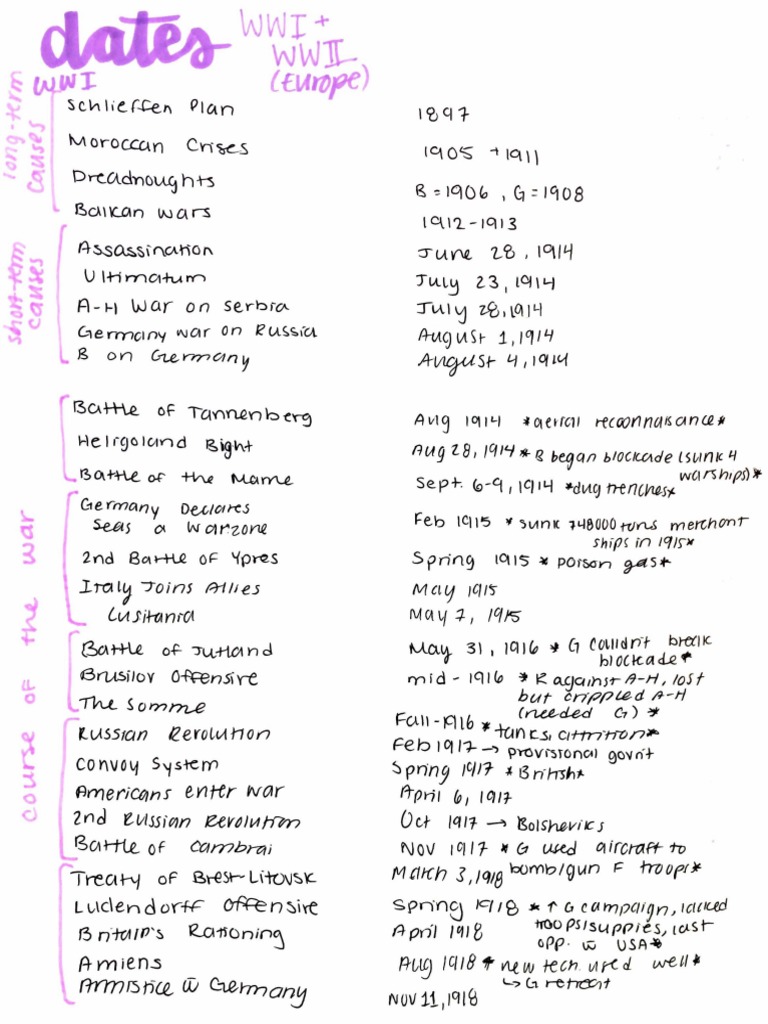 dates WWI +
WWII
(Europe)
WWI
long-term causes
Schlieffen Plan 1897
Moroccan Crises 1905 + 1911
Dreadnoughts B = 1906, G = 1908
Balkan wars 1912-1913
short-term causes
Assassination June 28, 1914
Ultimatum July 23, 1914
A-H War on Serbia July 28, 1914
Germany war on Russia August 1, 1914
B on Germany August 4, 1914
course of the war
Battle of Tannenberg Aug 1914 *aerial reconnaisance*
Heligoland Bight Aug 28, 1914 * B began blockade (sunk 4 warships)*
Battle of the Marne Sept. 6-9, 1914 *dug trenches*
Germany Declares
Seas a Warzone Feb 1915 * sunk 748000 tons merchant ships in 1915*
2nd Battle of Ypres Spring 1915 * poison gas*
Italy Joins Allies May 1915
Lusitania May 7, 1915
Battle of Jutland May 31, 1916 * G couldn't break blockade*
Brusilov Offensive mid-1916 * R against A-H, lost
but crippled A-H
(needed G) *
The Somme Fall-1916 * tanks, attrition*
Russian Revolution Feb 1917 → provisional gov't
Convoy System Spring 1917 * British*
Americans enter war April 6, 1917
2nd Russian Revolution Oct 1917 → Bolsheviks
Battle of Cambrai Nov 1917 * G used aircraft to
bomb/gun F troops*
Treaty of Brest-Litovsk March 3, 1918
Ludendorff Offensive Spring 1918 * ↑ G campaign, lacked
troops/supplies, last
opp. w̄ USA*
Britain's Rationing April 1918
Amiens Aug 1918 * new tech. used well*
↳ G retreat
Armistice w̄ Germany Nov 11, 1918